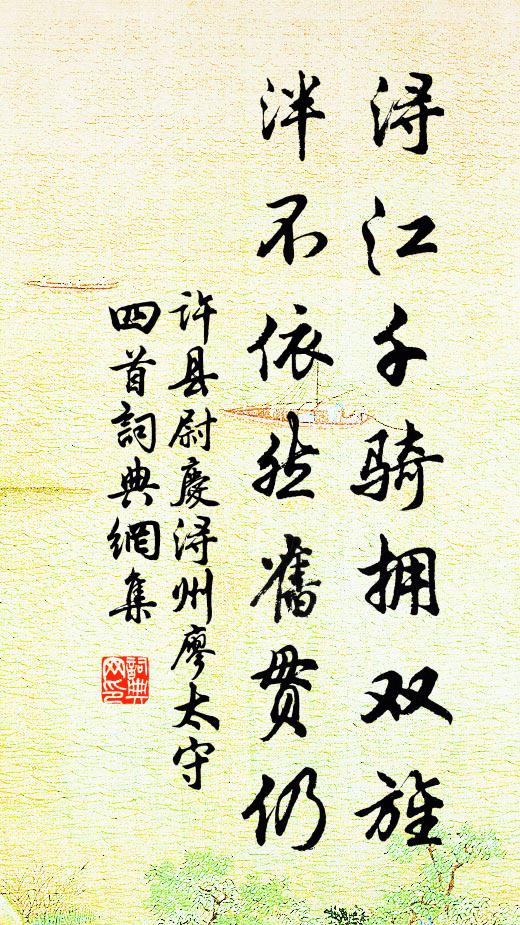 浔江千骑拥双旌
泮不依然舊贯仍
许县尉慶浔州廖太守
四首詞典網集
詞典
网印